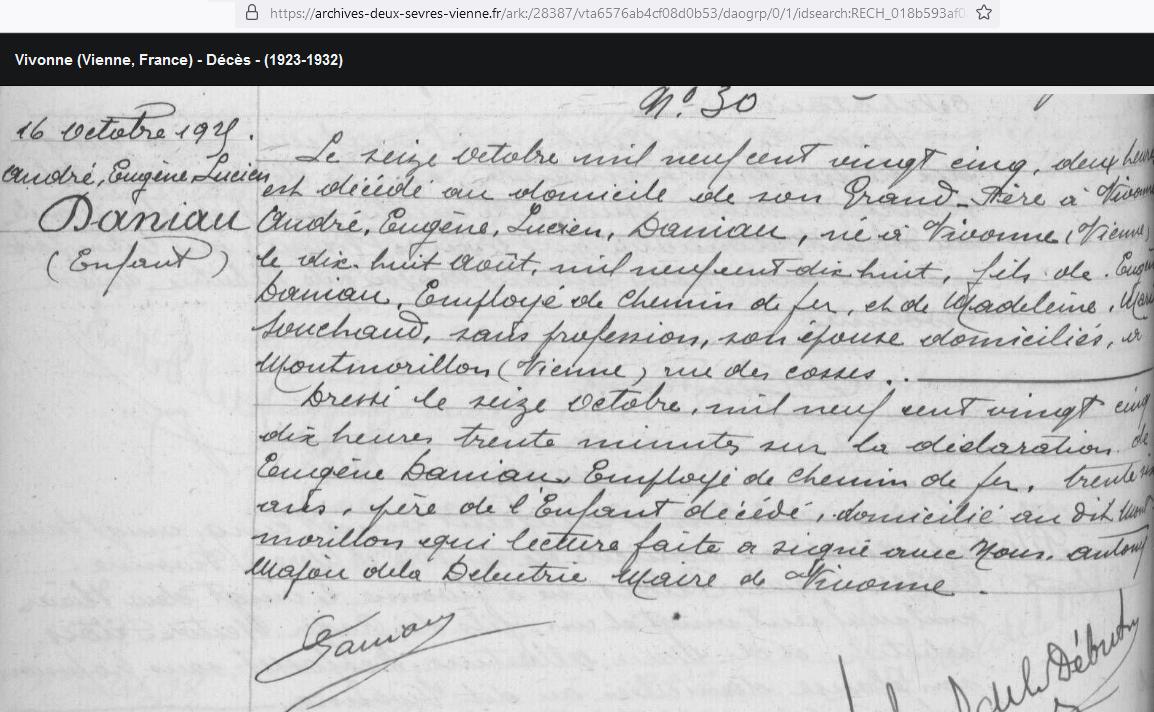 https://archives-deux-sevres-vienne.fr/ark:/28387/vta6576ab4cf08d0b53/daogrp/0/1/idsearch:RECH_018b593af0
Vivonne (Vienne, France) - Décès - (1923-1932)
N° 30
16 Octobre 1925.
André, Eugène, Lucien
Daniau
(Enfant)
Le seize Octobre mil neuf cent vingt cinq, deux heures
est décédé au domicile de son Grand-Père à Vivonne
André, Eugène, Lucien, Daniau, né à Vivonne (Vienne)
le dix huit Août, mil neuf cent dix huit, fils de Eugène
Daniau, Employé de chemin de fer, et de Madeleine, Marie
Souchaud, sans profession, son épouse domiciliés, à
Montmorillon (Vienne) rue des cosses.
Dressé le seize Octobre, mil neuf cent vingt cinq
dix heures trente minutes sur la déclaration de
Eugène Daniau Employé de chemin de fer, trente six
ans, père de l'Enfant décédé, domicilié au dit Mont
morillon qui lecture faite a signé avec Nous. Antony
Majou de la Débutrie Maire de Vivonne.
Daniau
de la Débutrie